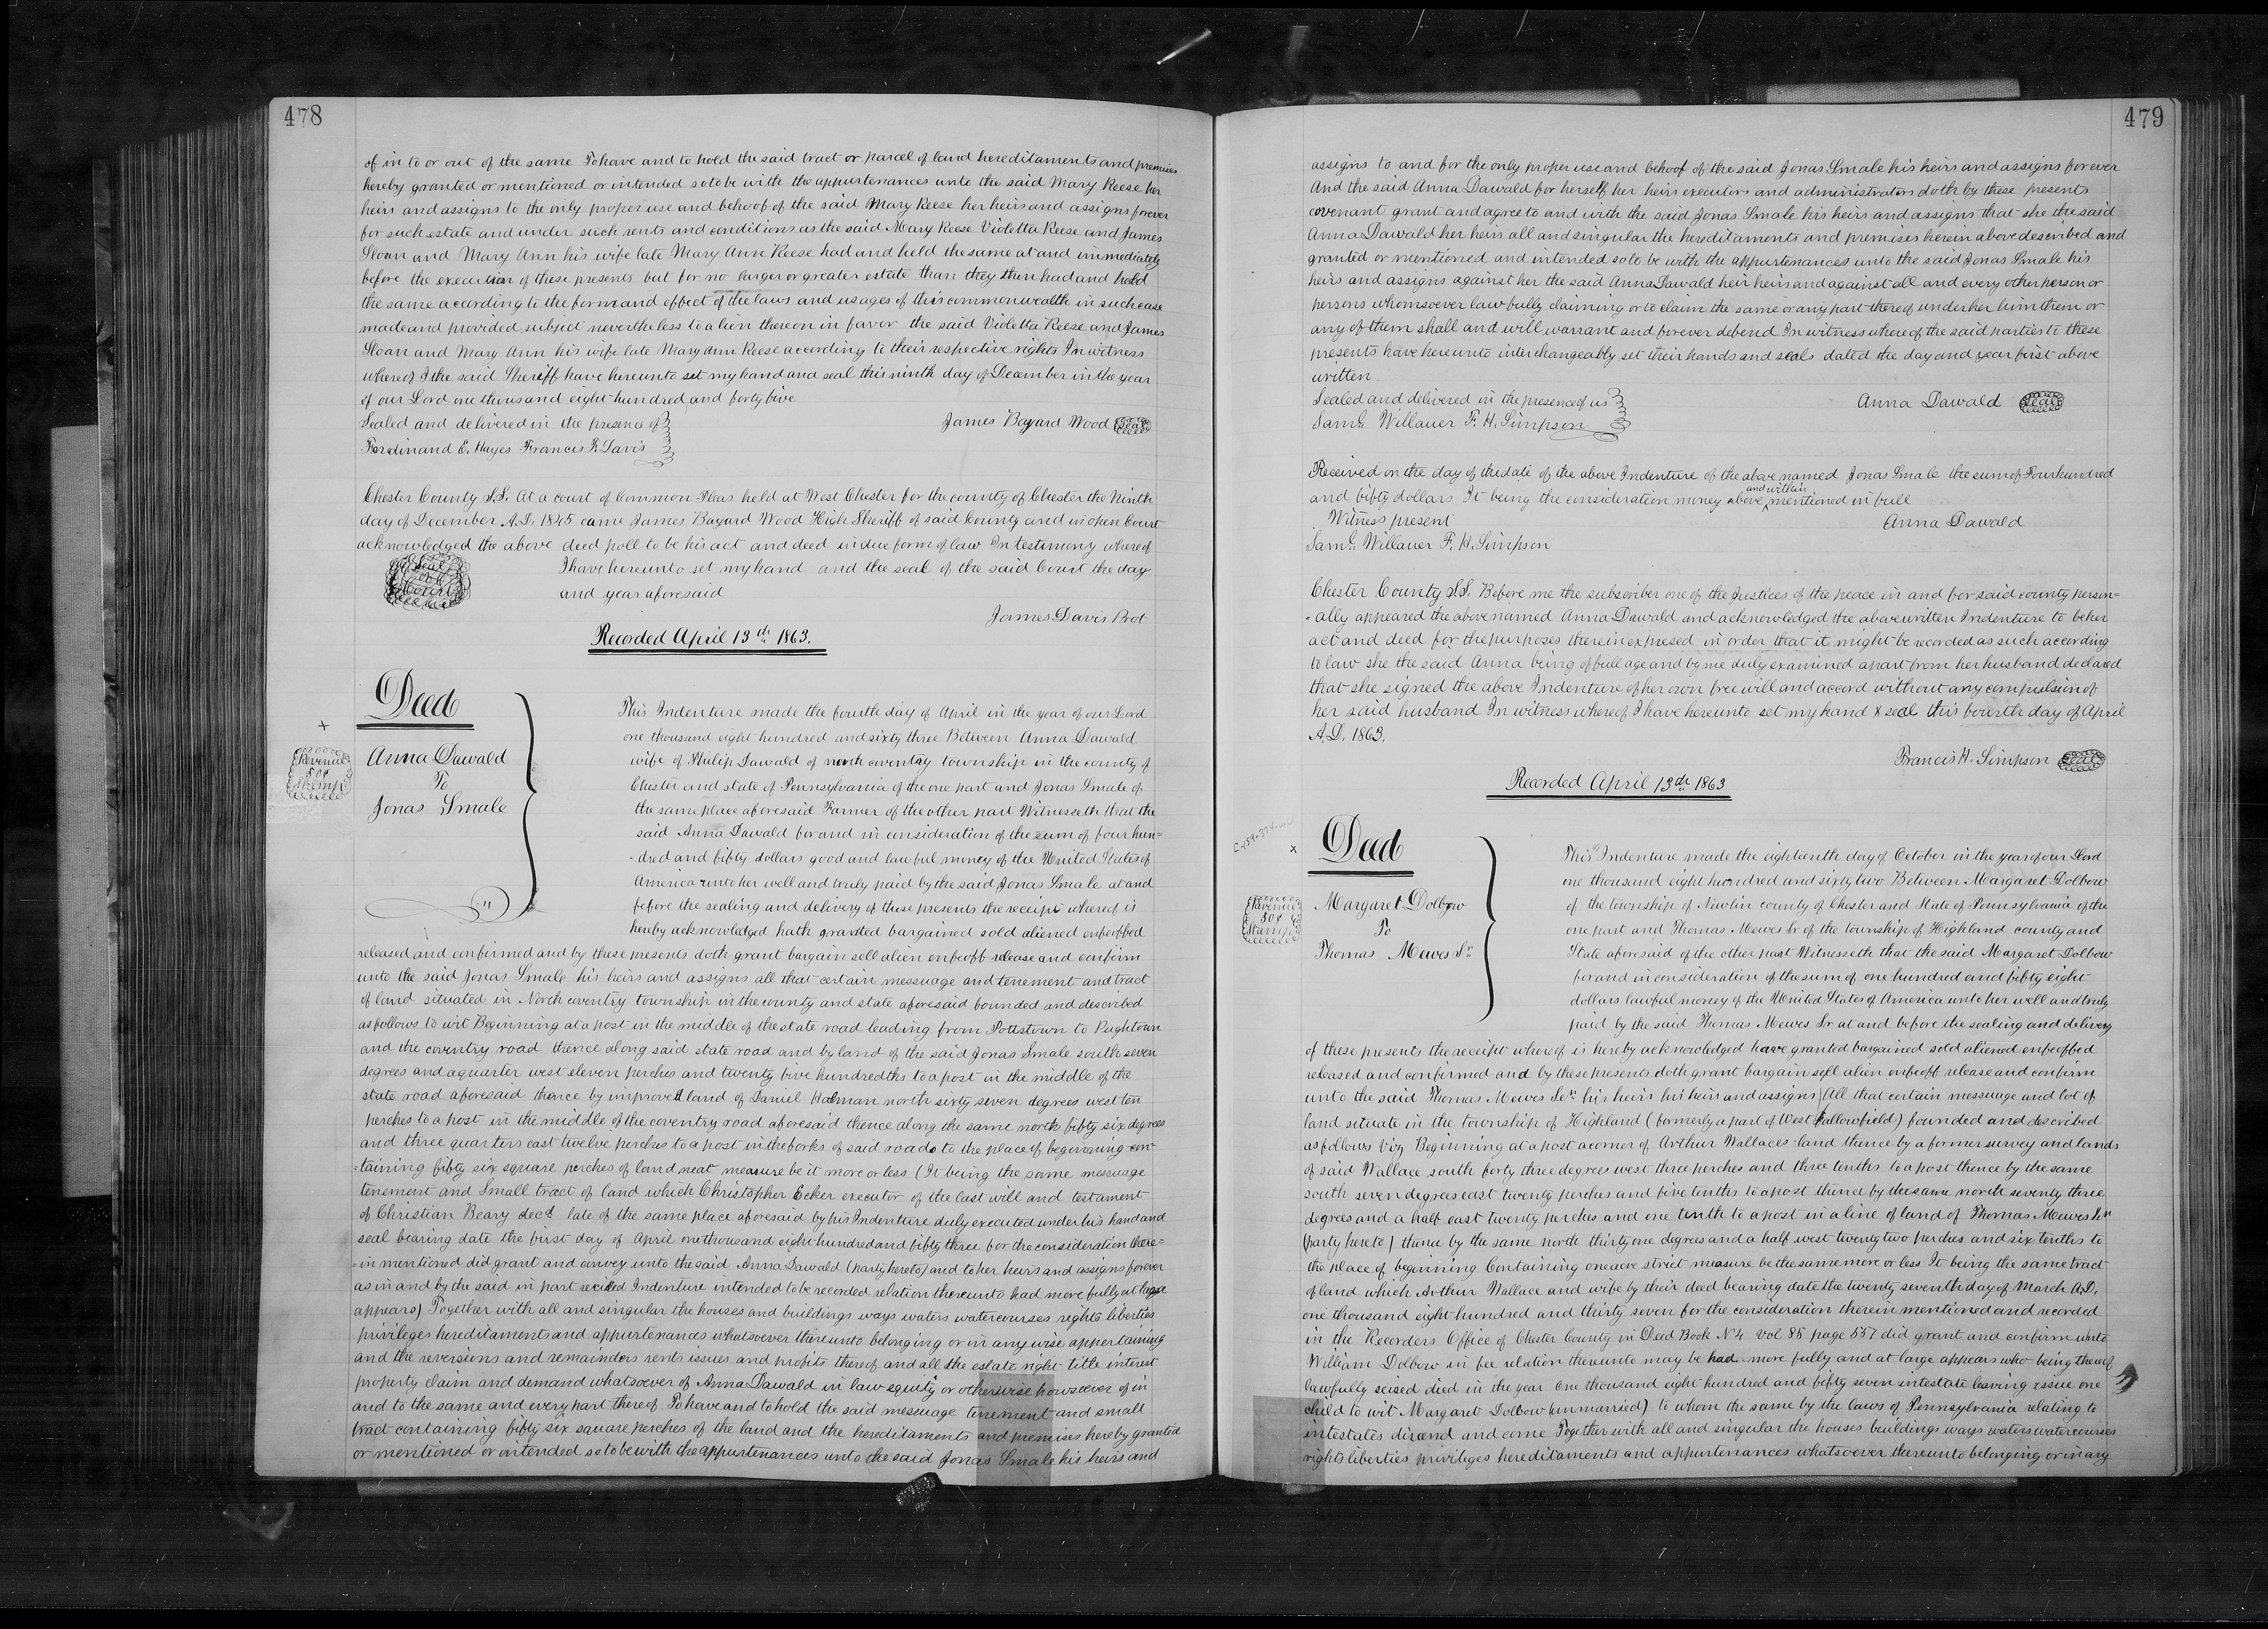 478
of in to or out of the same To have and to hold the said tract or parcel of land hereditaments and premises
hereby granted or mentioned or intended so to be with the appurtenances unto the said Mary Reese her
heirs and assigns to the only proper use and behoof of the said Mary Reese her heirs and assigns forever
for such estate and under such rents and conditions as the said Mary Reese Violetta Reese and James
Sloan and Mary Ann his wife late Mary Ann Reese had and held the same at and immediately
before the execution of these presents but for no larger or greater estate than they then had and held
the same according to the form and effect of the laws and usages of this commonwealth in such case
made and provided subject nevertheless to a lien thereon in favor the said Violetta Reese and James
Sloan and Mary Ann his wife late Mary Ann Reese according to their respective rights In witness
whereof I the said Sheriff have hereunto set my hand and seal this ninth day of December in the year
of our Lord one thousand eight hundred and forty five
Sealed and delivered in the presence of
James Bayard Wood Seal
Ferdinand E. Hayes Francis F. Davis
Chester County S.S. At a court of Common Pleas held at West Chester for the county of Chester the Ninth
day of December A.D. 1845 came James Bayard Wood High Sheriff of said County and in open Court
acknowledged the above deed poll to be his act and deed in due form of law In testimony whereof
Seal of Court
I have hereunto set my hand and the seal of the said Court the day
and year aforesaid
James Davis Prot
Recorded April 13th 1863.
Deed
Anna Dawald
To
Jonas Smale
Revenue
50¢
Stamp
This Indenture made the fourth day of April in the year of our Lord
one thousand eight hundred and sixty three Between Anna Dawald
wife of Philip Dawald of north coventry township in the county of
Chester and state of Pennsylvania of the one part and Jonas Smale of
the same place aforesaid Farmer of the other part Witnesseth that the
said Anna Dawald for and in consideration of the sum of four hun=
-dred and fifty dollars good and lawful money of the United States of
America unto her well and truly paid by the said Jonas Smale at and
before the sealing and delivery of these presents the receipt whereof is
hereby acknowledged hath granted bargained sold aliened enfeoffed
released and confirmed and by these presents doth grant bargain sell alien enfeoff release and confirm
unto the said Jonas Smale his heirs and assigns all that certain messuage and tenement and tract
of land situated in North coventry township in the county and state aforesaid bounded and described
as follows to wit Beginning at a post in the middle of the state road leading from Pottstown to Pughtown
and the coventry road thence along said state road and by land of the said Jonas Smale south seven
degrees and a quarter west eleven perches and twenty five hundredths to a post in the middle of the
state road aforesaid thence by improved land of Daniel Holman north sixty seven degrees west ten
perches to a post in the middle of the coventry road aforesaid thence along the same north fifty six degrees
and three quarters east twelve perches to a post in the forks of said roads to the place of beginning con-
=taining fifty six square perches of land neat measure be it more or less (It being the same messuage
tenement and Small tract of land which Christopher Ecker executor of the last will and testament
of Christian Beary decd late of the same place aforesaid by his Indenture duly executed under his hand and
seal bearing date the first day of April one thousand eight hundred and fifty three for the consideration there=
-in mentioned did grant and convey unto the said Anna Dawald (party hereto) and to her heirs and assigns forever
as in and by the said in part recited Indenture intended to be recorded relation thereunto had more fully at large
appears) Together with all and singular the houses and buildings ways waters watercourses rights liberties
privileges hereditaments and appurtenances whatsoever thereunto belonging or in any wise appertaining
and the reversions and remainders rents issues and profits thereof and all the estate right title interest
property claim and demand whatsoever of Anna Dawald in law equity or otherwise howsoever of in
and to the same and every part thereof To have and to hold the said messuage tenement and small
tract containing fifty six square perches of the land and the hereditaments and premises hereby granted
or mentioned or intended so to be with the appurtenances unto the said Jonas Smale his heirs and
479
assigns to and for the only proper use and behoof of the said Jonas Smale his heirs and assigns forever
And the said Anna Dawald for herself her heirs executors and administrators doth by these presents
covenant grant and agree to and with the said Jonas Smale his heirs and assigns that she the said
Anna Dawald her heirs all and singular the hereditaments and premises herein above described and
granted or mentioned and intended so to be with the appurtenances unto the said Jonas Smale his
heirs and assigns against her the said Anna Dawald heir heirs and against all and every other person or
persons whomsoever lawfully claiming or to claim the same or any part thereof under her him them or
any of them shall and will warrant and forever defend In witness whereof the said parties to these
presents have hereunto interchangeably set their hands and seals dated the day and year first above
written
Sealed and delivered in the presence of us
Anna Dawald Seal
Saml. Willauer F. H. Simpson
Received on the day of the date of the above Indenture of the above named Jonas Smale the sum of Four hundred
and fifty dollars It being the consideration money above and within mentioned in full
Witness present
Anna Dawald
Saml. Willauer F. H. Simpson
Chester County S.S. Before me the subscriber one of the Justices of the peace in and for said county person=
-ally appeared the above named Anna Dawald and acknowledged the above written Indenture to be her
act and deed for the purposes therein expresed in order that it might be recorded as such according
to law she the said Anna being of full age and by me duly examined apart from her husband declared
that she signed the above Indenture of her own free will and accord without any compulsion of
her said husband In witness whereof I have hereunto set my hand & seal this fourth day of April
A.D. 1863.
Francis H. Simpson Seal
Recorded April 13th 1863
Deed
Margaret Dolbow
To
Thomas Mewes Sr
Revenue
50¢
Stamp
This Indenture made the eighteenth day of October in the year of our Lord
one thousand eight hundred and sixty two Between Margaret Dolbow
of the township of Newlin county of Chester and State of Pennsylvania of the
one part and Thomas Mewes Sr of the township of Highland county and
State aforesaid of the other part Witnesseth that the said Margaret Dolbow
for and in consideration of the sum of one hundred and fifty eight
dollars lawful money of the United States of America unto her well and truly
paid by the said Thomas Mewes Sr at and before the sealing and delivery
of these presents the receipt whereof is hereby acknowledged have granted bargained sold aliened enfeoffed
released and confirmed and by these presents doth grant bargain sell alien enfeoff release and confirm
unto the said Thomas Mewes Senr his heirs his heirs and assigns (All that certain messuage and lot of
land situate in the township of Highland (formerly a part of West Fallowfield) founded and described
as follows Viz Beginning at a post a corner of Arthur Wallaces land thence by a former survey and lands
of said Wallace south forty three degrees west three perches and three tenths to a post thence by the same
south seven degrees east twenty perches and five tenths to a post thence by the same north seventy three
degrees and a half east twenty perches and one tenth to a post in a line of land of Thomas Mewes Senr
(party hereto) thence by the same north thirty one degrees and a half west twenty two perches and six tenths to
the place of beginning Containing one acre strict measure be the same more or less It being the same tract
of land which Arthur Wallace and wife by their deed bearing date the twenty seventh day of March A.D.
one thousand eight hundred and thirty seven for the consideration therein mentioned and recorded
in the Recorders Office of Chester County in Deed Book N4 Vol 85 page 557 did grant and confirm unto
William Dolbow in fee relation thereunto may be had more fully and at large appears who being thereof
lawfully seised died in the year One thousand eight hundred and fifty seven intestate leaving issue one
child to wit Margaret Dolbow (unmarried) to whom the same by the laws of Pennsylvania relating to
intestates dicend and come Together with all and singular the houses buildings ways waters watercourses
rights liberties privileges hereditaments and appurtenances whatsoever thereunto belonging or in any